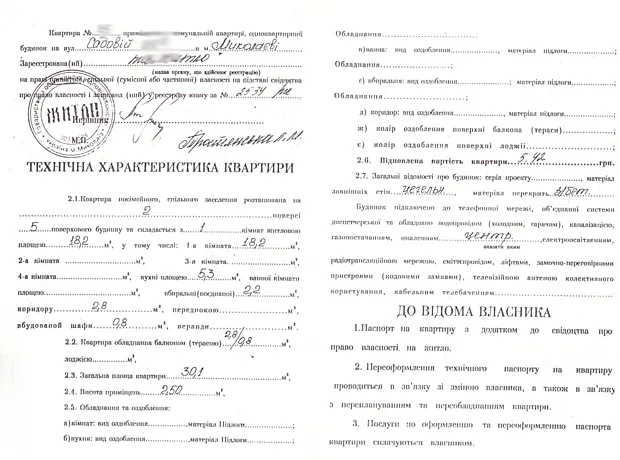 Квартира №
комунальній квартирі, одноквартирний
будинок на вул. Садовій в м. Миколаєві
Зареєстрована(ий)
(назва органу, що здійснює реєстрацію)
на праві приватної, спільної (сумісної або часткової) власності на підставі свідоцтва
про право власності і записана (ний) у реєстрову книгу за № 2534
ЖИТЛО
Керівник
М.П.
ТЕХНІЧНА ХАРАКТЕРИСТИКА КВАРТИРИ
2.1.Квартира посімейного, спільного заселення розташована на
2 поверсі
5 поверхового будинку та складається з 1 кімнат житловою
площею 18,2 м², у тому числі: 1-а кімната 18,2 м²,
2-а кімната м², 3-я кімната м²,
4-а кімната м², кухні площею 5,3 м², ванної кімнати
площею м², вбиральні(поєднаної) 2,2 м²,
коридору 2,8 м², передпокою м²,
вбудованої шафи 0,8 м², веранди м²,
2.2. Квартира обладнана балконом (терасою) 2,8/0,8 м²,
лоджією м²,
2.3. Загальна площа квартири 30,1 м²,
2.4. Висота приміщень 2,50 м,
2.5. Обладнання та оздоблення:
а)кімнат: вид оздоблення, матеріал Підлоги ;
б)кухня: вид оздоблення, матеріал Підлоги ;
Обладнання ;
в)ванна: вид оздоблення, матеріал підлоги
Обладнання ;
г) вбиральня: вид оздоблення, матеріал підлоги
Обладнання ;
д) коридор: вид оздоблення, матеріал підлоги
ж) колір оздоблення поверхні балкона (тераси) ;
є) колір оздоблення поверхні лоджії
2.6. Відновлена вартість квартири 5,42 грн.
2.7. Загальні відомості про будинок: серія проекту, матеріал
зовнішніх стін цегельн, матеріал перекрить з/бет.
Будинок підключено до телефонної мережі, об'єднаної системи
диспетчерської та обладнано водопроводом (холодним, гарячим), каналізацією,
газопостачанням, опаленням центр. електроосвітленням,
вказати яким
радіотрансляційною мережею, сміттєпроводом, ліфтами, замочно-переговорними
пристроями (кодовими замками), телевізійною антеною колективного
користування, кабельним телебаченням
ДО ВІДОМА ВЛАСНИКА
1.Паспорт на квартиру є додатком до свідоцтва про
право власності на житло.
2. Переоформлення технічного паспорту на квартиру
проводиться в зв'язку зі зміною власника, а також в зв'язку
з переплануванням та переобладнанням квартири.
3. Послуги по оформленню та переоформленню паспорта
квартири сплачуються власником.